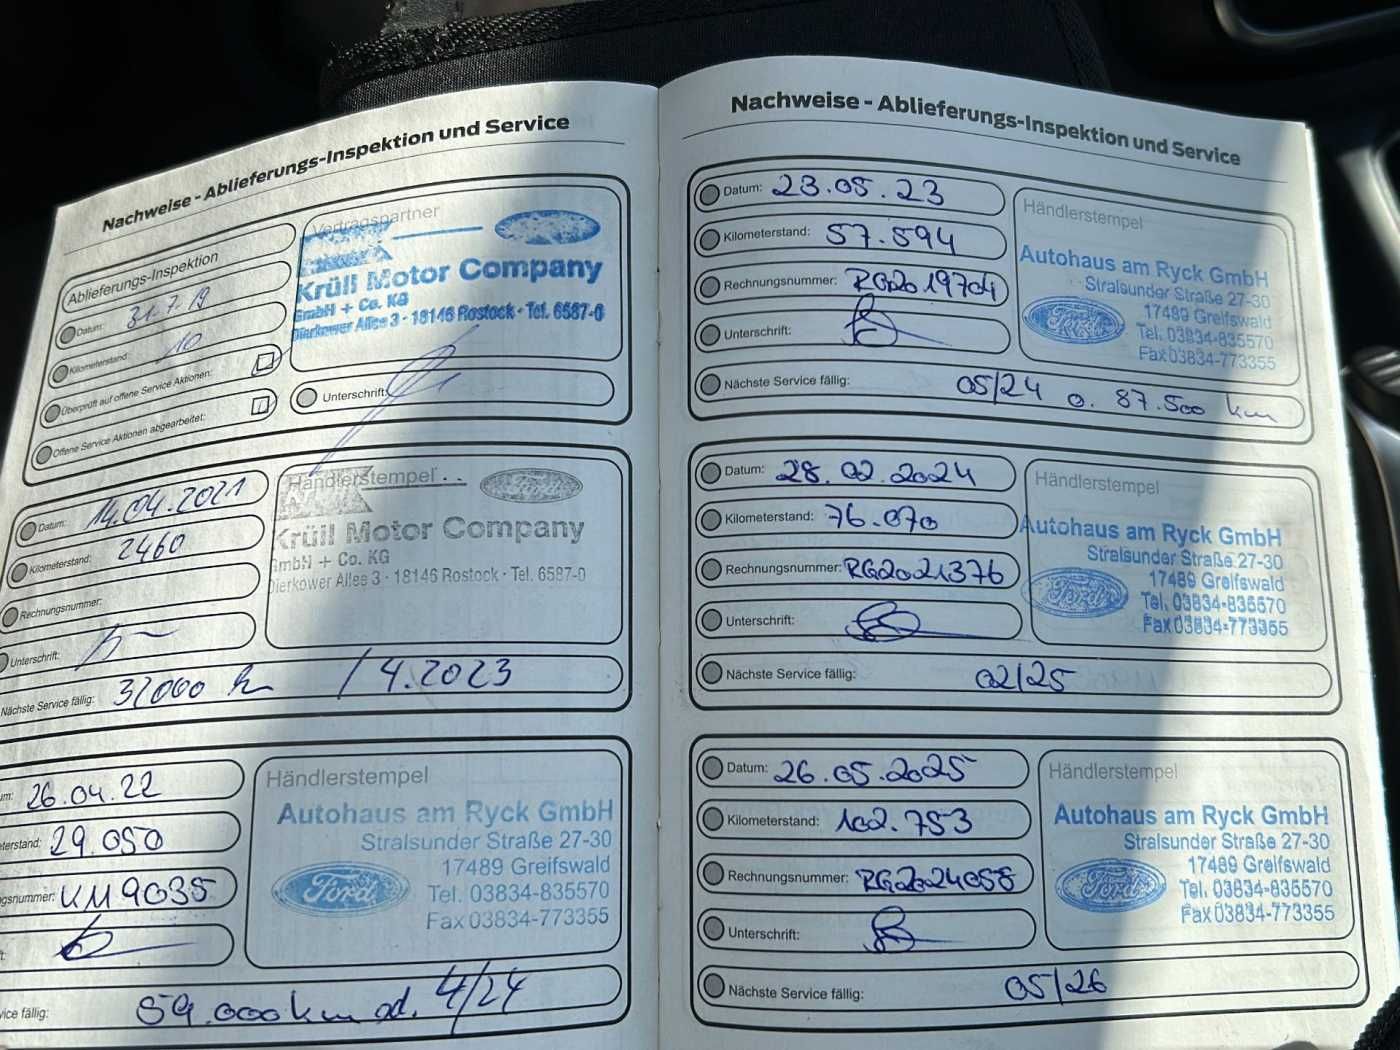 Nachweise - Ablieferungs-Inspektion und Service
Ablieferungs-Inspektion
Datum: 31.7.19
Kilometerstand: 10
Überprüft auf offene Service Aktionen:
Offene Service Aktionen abgearbeitet:
Vertragspartner
Krüll Motor Company
GmbH + Co. KG
Dierkower Allee 3 · 18146 Rostock · Tel. 6587-0
Unterschrift:
Datum: 14.04.2021
Kilometerstand: 2460
Rechnungsnummer:
Unterschrift:
Nächste Service fällig: 32000 km / 4.2023
Händlerstempel
Ford
Krüll Motor Company
GmbH + Co. KG
Dierkower Allee 3 · 18146 Rostock · Tel. 6587-0
um: 26.04.22
terstand: 29.050
gsnummer: KM9035
t:
vice fällig: 59.000km od. 4/24
Händlerstempel
Autohaus am Ryck GmbH
Stralsunder Straße 27-30
17489 Greifswald
Ford
Tel. 03834-835570
Fax 03834-773355
Nachweise - Ablieferungs-Inspektion und Service
Datum: 23.05.23
Kilometerstand: 57.594
Rechnungsnummer: RG2019704
Unterschrift:
Nächste Service fällig: 05/24 o. 87.500 km
Händlerstempel
Autohaus am Ryck GmbH
Stralsunder Straße 27-30
17489 Greifswald
Ford
Tel. 03834-835570
Fax 03834-773355
Datum: 28.02.2024
Kilometerstand: 76.070
Rechnungsnummer: RG2021376
Unterschrift:
Nächste Service fällig: 02/25
Händlerstempel
Autohaus am Ryck GmbH
Stralsunder Straße 27-30
17489 Greifswald
Ford
Tel. 03834-835570
Fax 03834-773355
Datum: 26.05.2025
Kilometerstand: 102.753
Rechnungsnummer: RG2024058
Unterschrift:
Nächste Service fällig: 05/26
Händlerstempel
Autohaus am Ryck GmbH
Stralsunder Straße 27-30
17489 Greifswald
Ford
Tel. 03834-835570
Fax 03834-773355